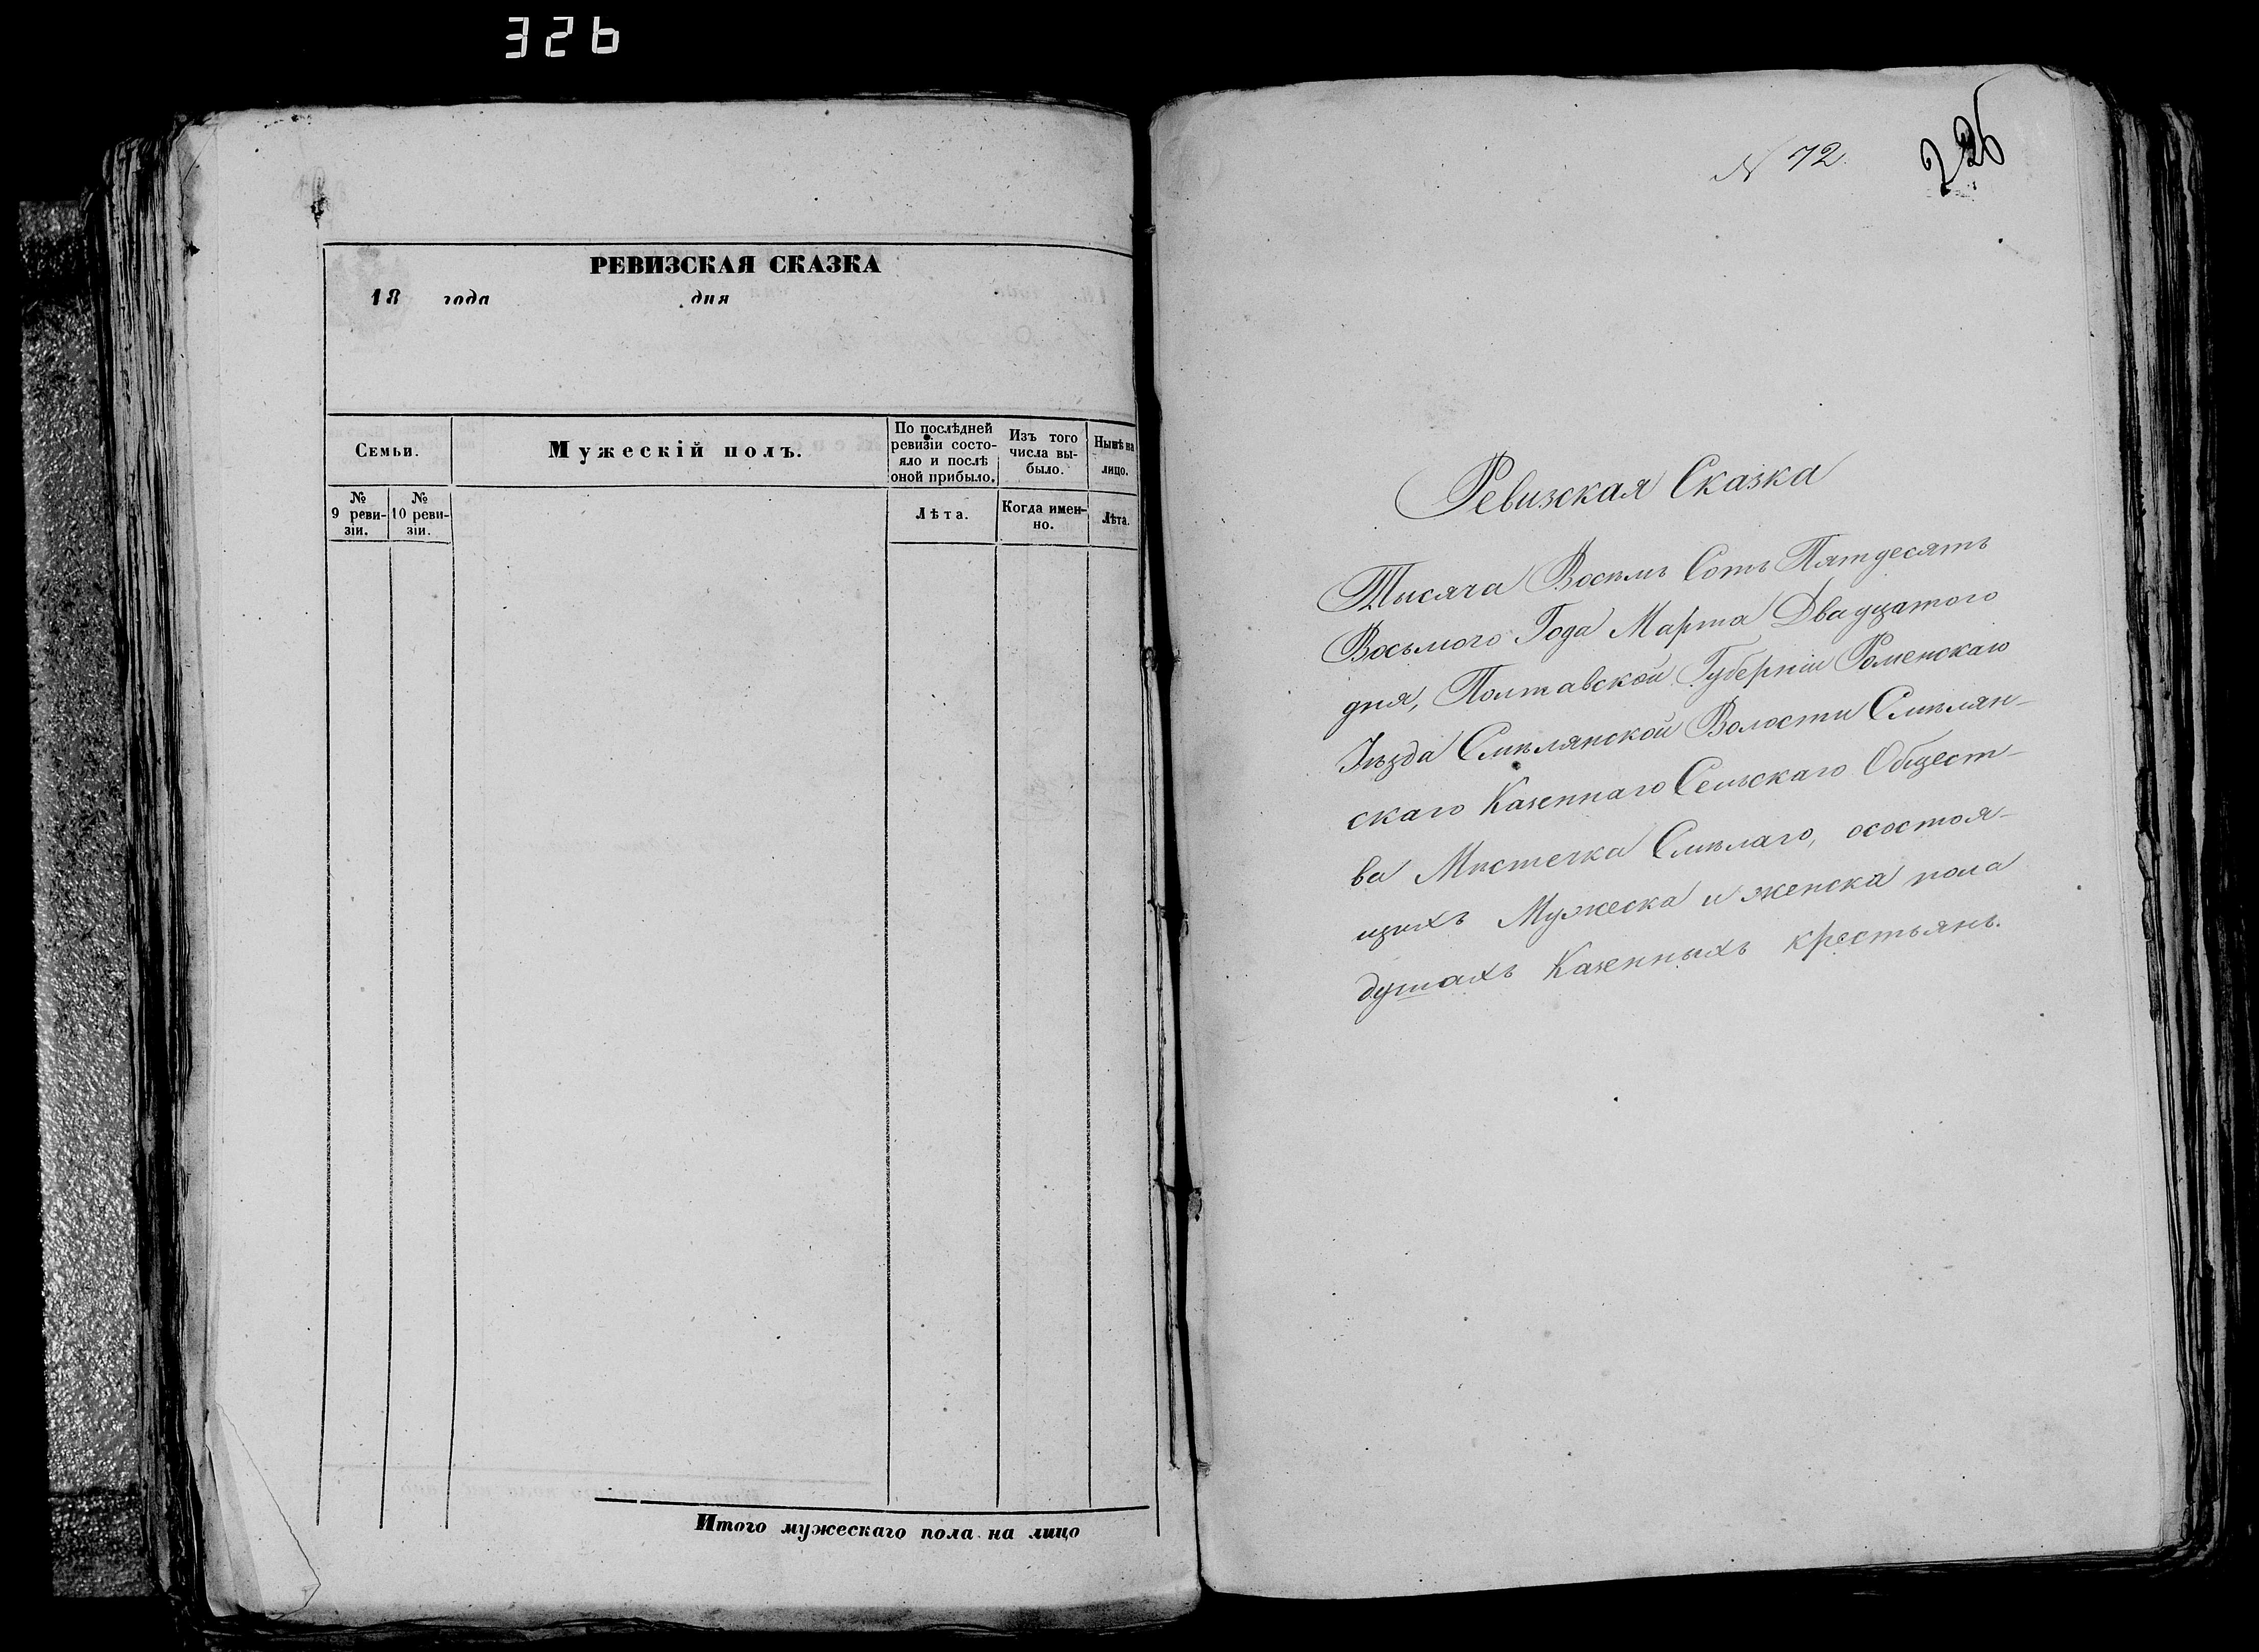 326
РЕВИЗСКАЯ СКАЗКА
18 года дня
Семьи.
Мужескій полъ.
По послѣдней
ревизіи состо-
яло и послѣ
оной прибыло.
Изъ того
числа вы-
было.
Нынѣ на
лицо.
№
9 реви-
зіи.
№
10 реви-
зіи.
Лѣта.
Когда имен-
но.
Лѣта.
Итого мужескаго пола на лицо
N 72
226
Ревизская Сказка
Тысяча Восѣмъ Сотъ Пятдесятъ
Восьмого Года Марта Двадцатого
дня, Полтавской Губерніи Роменскаго
Уѣзда Смѣлянской Волости Смѣлян-
скаго Казеннаго Сельскаго Общест-
ва Мѣстечка Смѣлаго, осостоя-
щихъ Мужеска и женска пола
душахъ Казенныхъ крестьянъ.